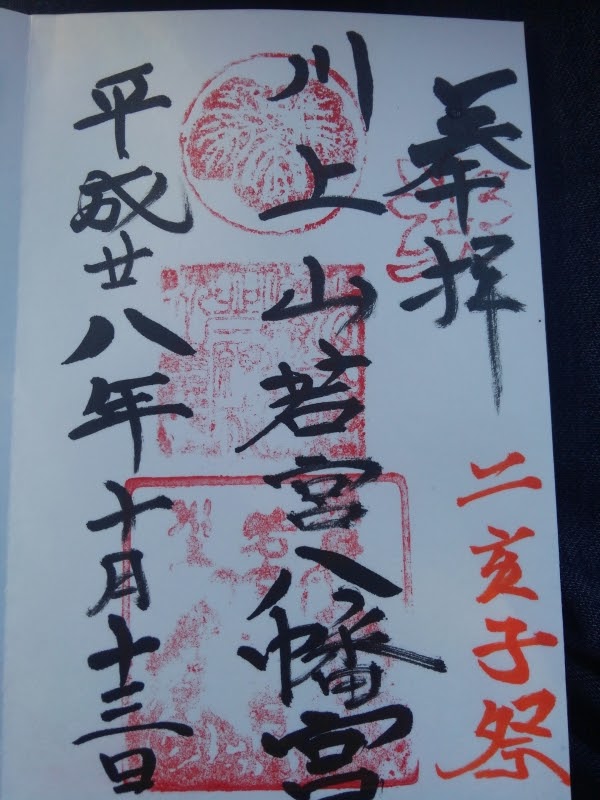 奉拝
二亥子祭
川上山若宮八幡宮
平成廿八年十月十三日